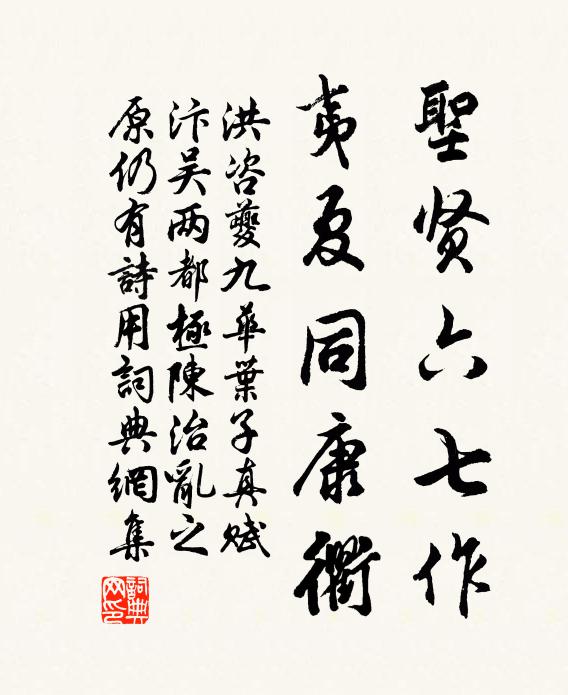 聖贤六七作
夷夏同康衢
洪咨夔九華葉子真赋
汴吴两都極陳治亂之
原仍有詩用詞典網集
詞典
网印